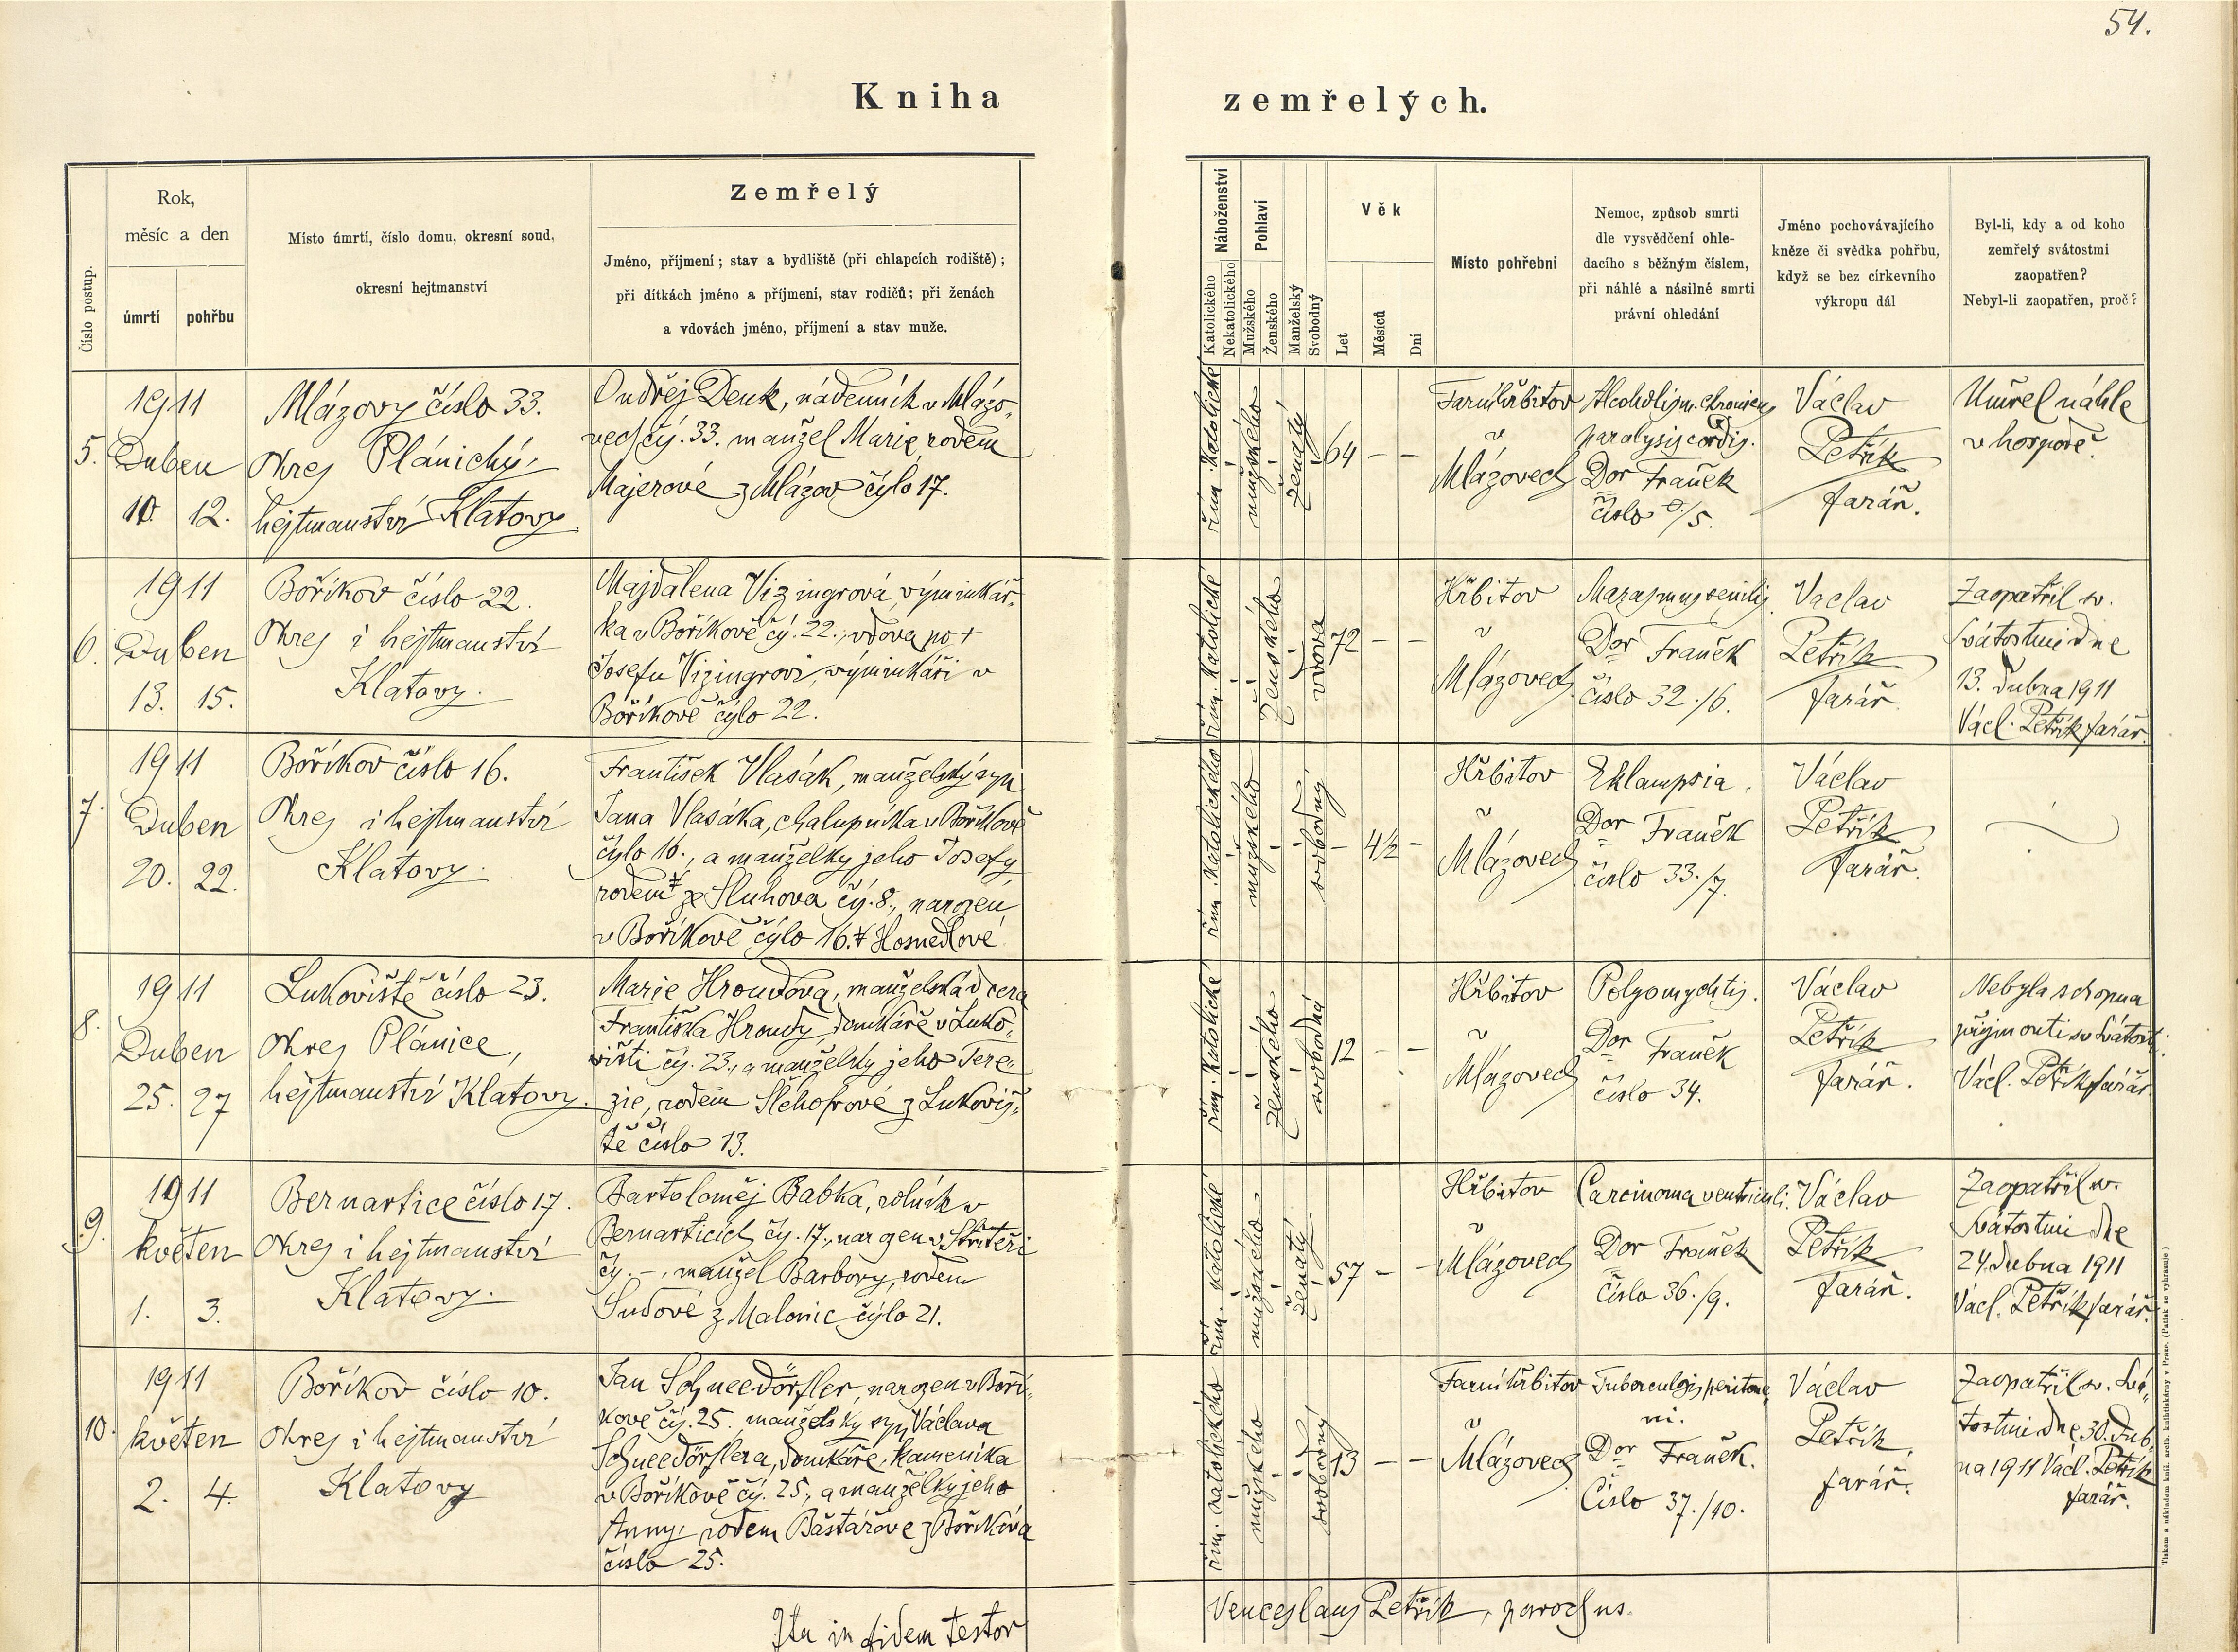 54.
Kniha zemřelých.
Číslo postup.
Rok,
měsíc a den
úmrtí
pohřbu
Místo úmrtí, číslo domu, okresní soud,
okresní hejtmanství
Zemřelý
Jméno, příjmení; stav a bydliště (při chlapcích rodiště);
při dítkách jméno a příjmení, stav rodičů; při ženách
a vdovách jméno, příjmení a stav muže.
Náboženství
Katolického
Nekatolického
Pohlaví
Mužského
Ženského
Manželský
Svobodný
Věk
Let
Měsíců
Dní
Místo pohřební
Nemoc, způsob smrti
dle vysvědčení ohle-
dacího s běžným číslem,
při náhlé a násilné smrti
právní ohledání
Jméno pochovávajícího
kněze či svědka pohřbu,
když se bez církevního
výkropu dál
Byl-li, kdy a od koho
zemřelý svátostmi
zaopatřen?
Nebyl-li zaopatřen, proč?
5.
1911
Duben
10. 12.
Mlázovy číslo 33.
Okres Plánický,
hejtmanství Klatovy
Ondřej Denk, nádenník v Mlázo-
vech čís. 33. manžel Marie rodem
Majerové z Mlázov číslo 17.
řím. katolické
mužského
ženatý
64 – –
Farní hřbitov
v
Mlázovech
Alcoholism. chronicus
paralysis cordis.
Dor Franěk
číslo /5.
Václav
Petřík
farář.
Umřel náhle
v hospodě.
6.
1911
Duben
13. 15.
Boříkov číslo 22.
Okres i hejtmanství
Klatovy.
Majdalena Vizingrová, výminkář-
ka v Boříkově čís. 22., vdova po +
Josefu Vizingrovi, výminkáři v
Boříkově číslo 22.
řím. katolické
ženského
vdova
72 – –
Hřbitov
v
Mlázovech
Marasmus senilis.
Dor Franěk
číslo 32./6.
Vaclav
Petřík
farář.
Zaopatřil sv.
svátostmi dne
13. dubna 1911
Václ. Petřík farář.
7.
1911
Duben
20. 22.
Boříkov číslo 16.
Okres i hejtmanství
Klatovy.
František Vlasák, manželský syn
Jana Vlasáka, chalupníka v Boříkově
číslo 16., a manželky jeho Josefy
rodem ‡ ze Sluhova čís. 8., narozen
v Boříkově číslo 16. ‡ Hosnedlové.
řím. katolického
mužského
svobodný
– 4½ –
Hřbitov
v
Mlázovech
Eklampsia.
Dor Franěk
číslo 33./7.
Václav
Petřík
farář.
8.
1911
Duben
25. 27
Lukoviště číslo 23.
okres Plánice,
hejtmanství Klatovy.
Marie Hroudova, manželská dcera
Františka Hroudy, domkáře v Luko-
višti čís. 23., a manželky jeho Tere-
zie, rodem Šlehofrové z Lukoviš-
tě číslo 13.
řím. katolické
ženského
svobodná
12 – –
Hřbitov
v
Mlázovech
Dor Franěk
číslo 34.
Václav
Petřík
farář.
Nebyla schopna
přijmouti sv. svátosti.
Václ. Petřík farář.
9.
1911
květen
1. 3.
Bernartice číslo 17.
Okres i hejtmanství
Klatovy.
Bartoloměj Babka, rolník v
Bernarticích čís. 17., narozen v Střiteři
čís. –, manžel Barbory, rodem
Sudové z Malonic číslo 21.
řím. katolické
mužského
ženatý
57 – –
Hřbitov
v
Mlázovech
Carcinoma ventriculi.
Dor Franěk
číslo 36./9.
Václav
Petřík
farář.
Zaopatřil sv.
svátostmi dne
24. dubna 1911
Vacl. Petřík farář.
10.
1911
květen
2. 4.
Boříkov číslo 10.
Okres i hejtmanství
Klatovy
Jan Schneedörfler, narozen v Boří-
kově čís. 25. manželský syn Václava
Schneedörflera, domkáře, kameníka
v Boříkově čís. 25., a manželky jeho
Anny, rodem Baštářove z Boříkova
číslo 25.
řím. katolického
mužského
svobodný
13 – –
Farní hřbitov
v
Mlázovech
Tuberculosis peritone-
ni.
Dor Franěk.
Číslo 37./10.
Václav
Petřík,
farář.
Zaopatřil sv. svá-
tostmi dne 30. dub-
na 1911 Václ. Petřík
farář.
Ita in fidem testor
Venceslaus Petřík, parochus.
Tiskem a nákladem kníž. arcib. knihtiskárny v Praze. (Patisk se vyhrazuje)